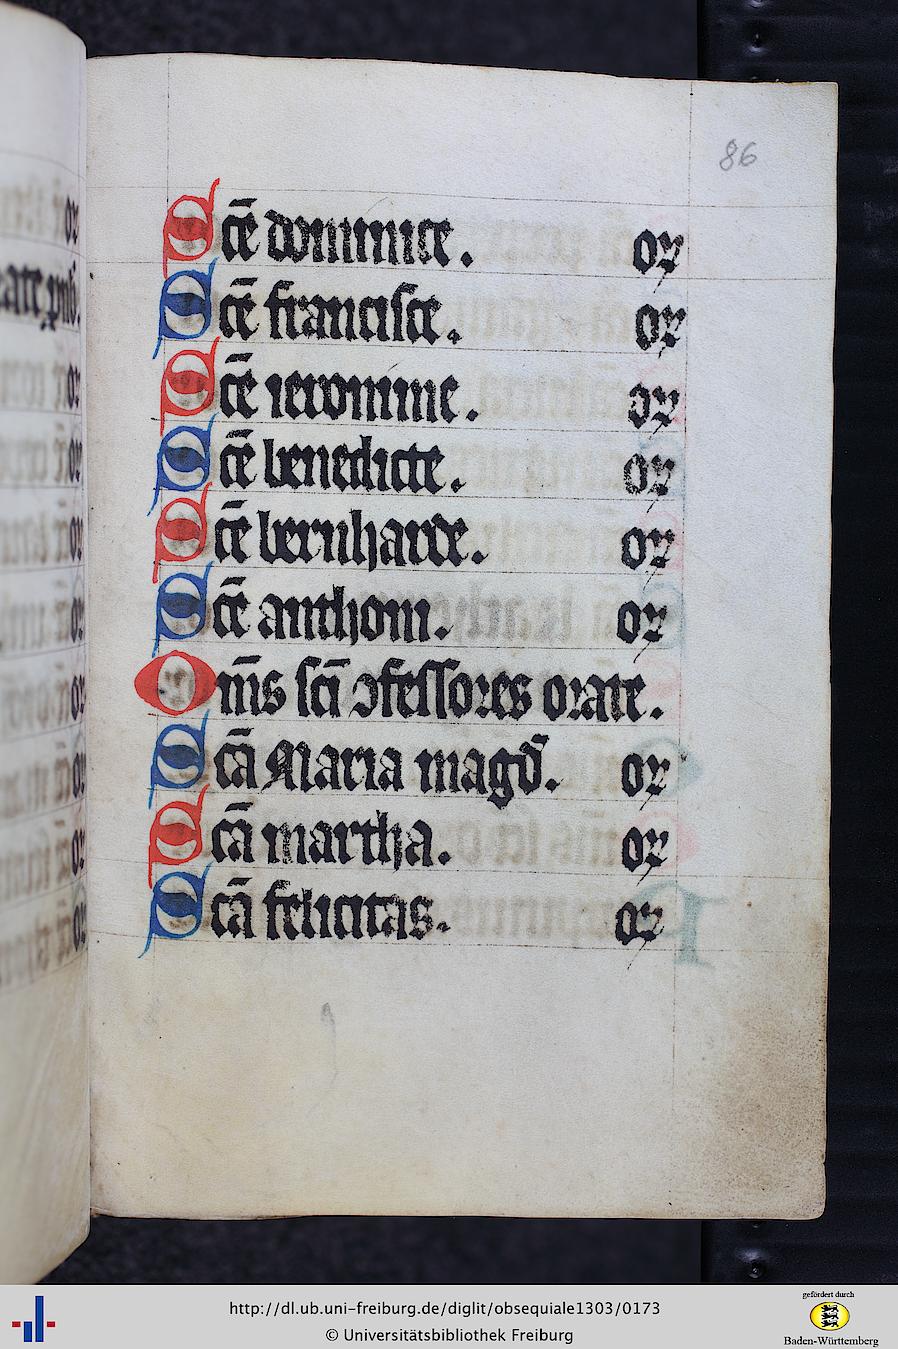 86
Scē dominice. oꝝ
Scē francisce. oꝝ
Scē ieronime. oꝝ
Scē benedicte. oꝝ
Scē bernharde. oꝝ
Scē anthoni. oꝝ
Om̄s sc̄i ↄfessores orate.
Scā Maria magd̄. oꝝ
Scā martha. oꝝ
Scā felicitas. oꝝ
http://dl.ub.uni-freiburg.de/diglit/obsequiale1303/0173
© Universitätsbibliothek Freiburg
gefördert durch
Baden-Württemberg